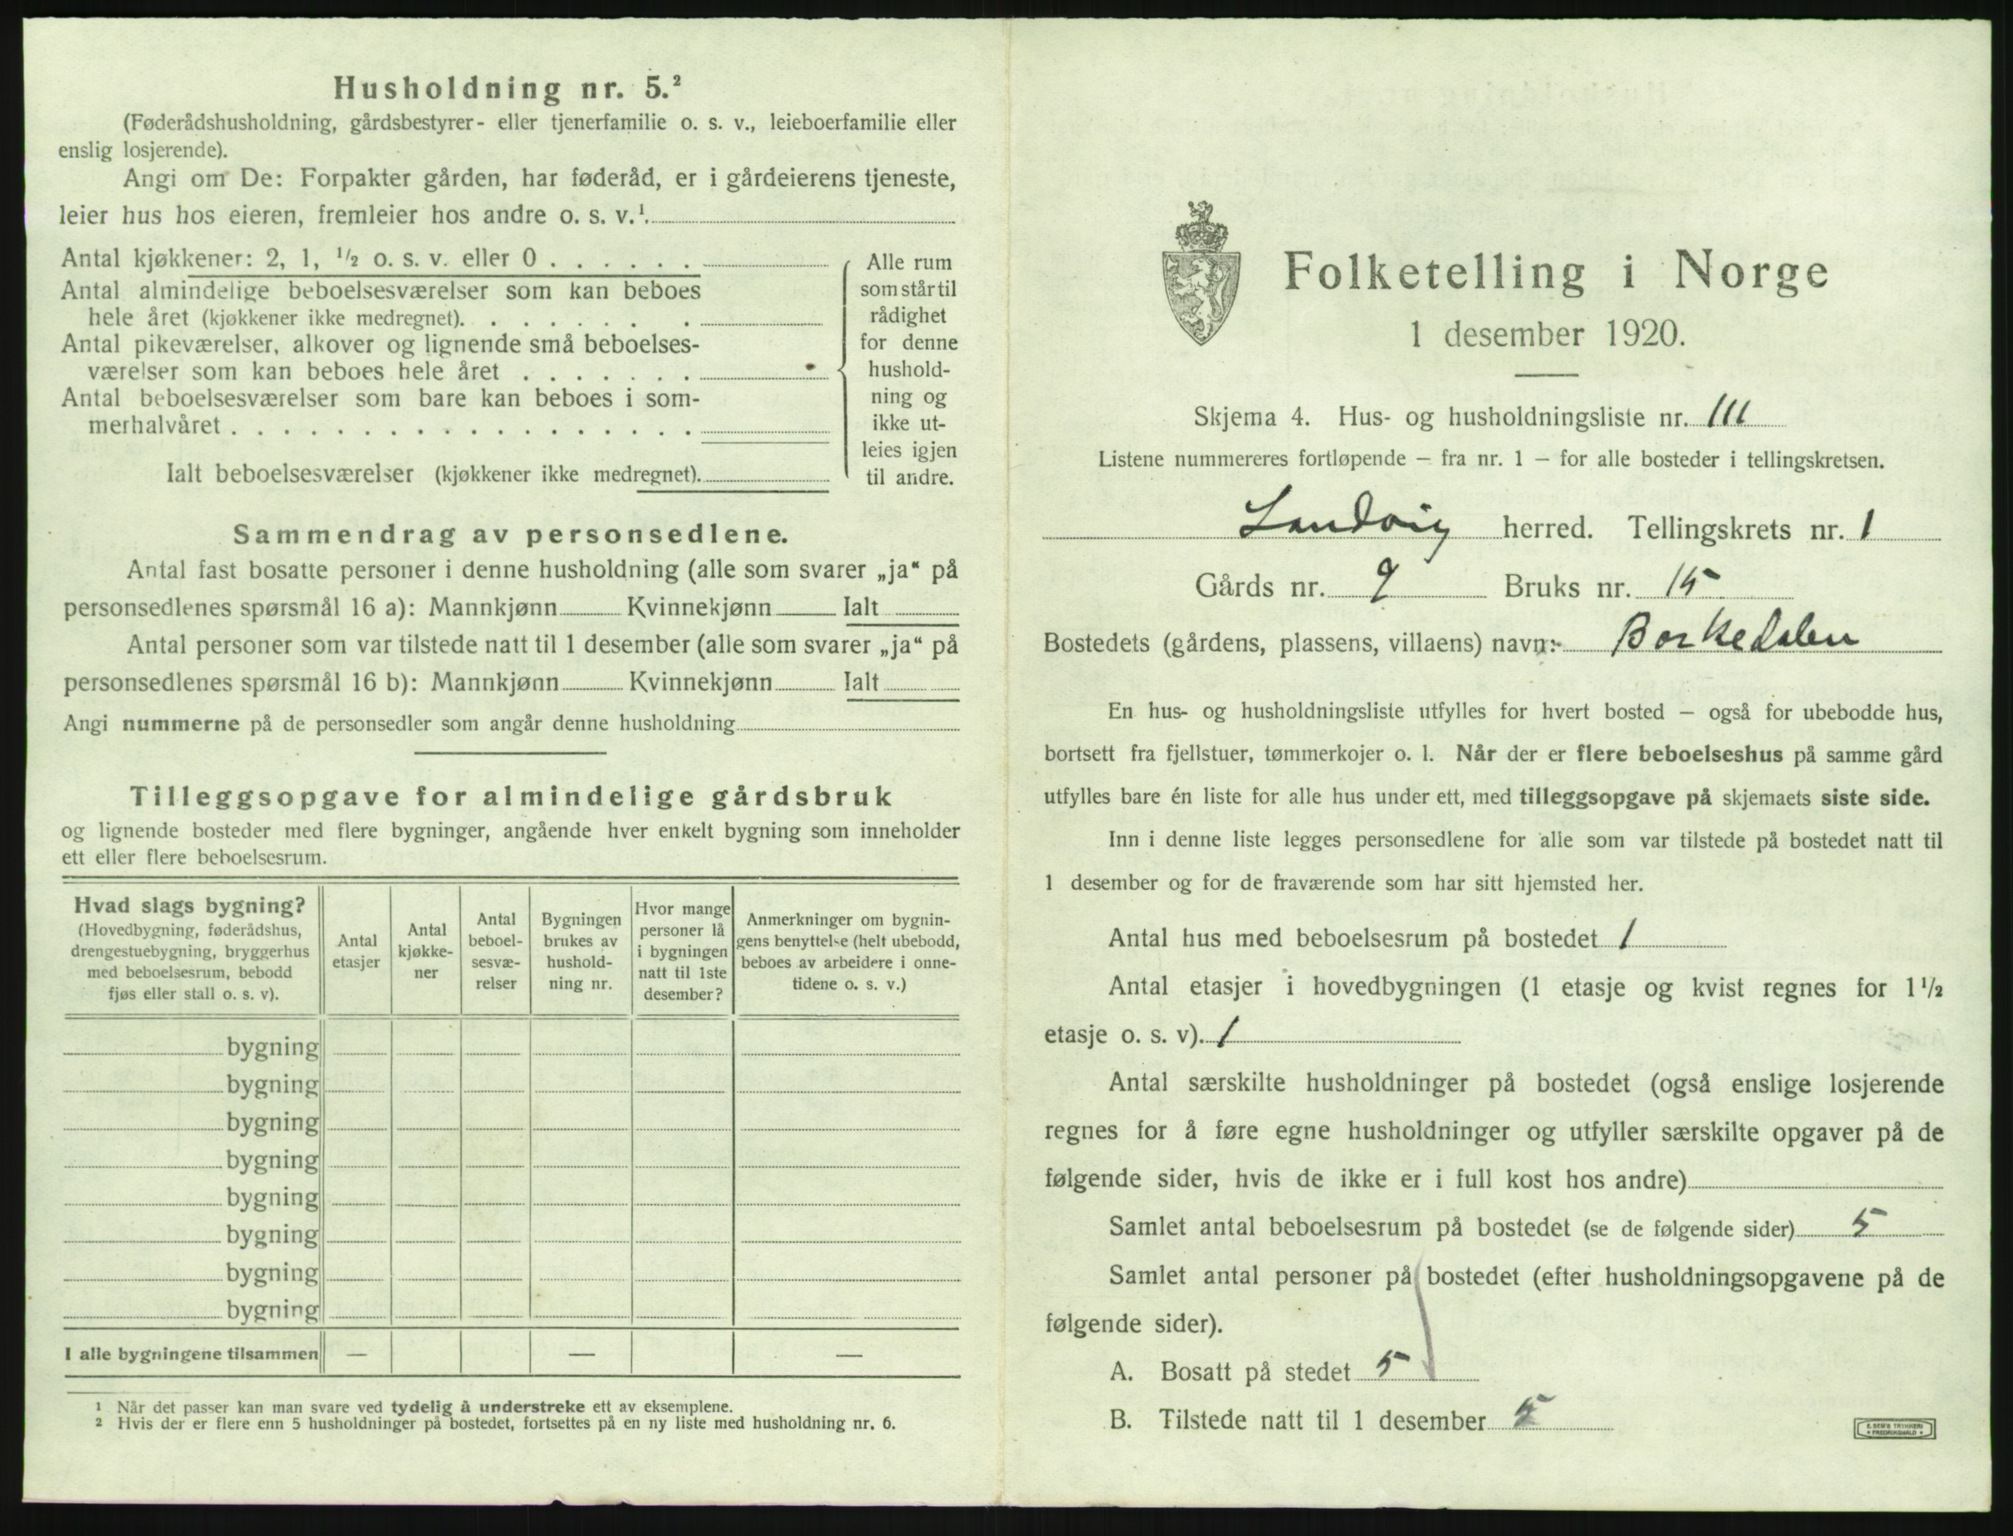 Husholdning nr. 5.²
(Føderådshusholdning, gårdsbestyrer- eller tjenerfamilie o. s. v., leieboerfamilie eller
enslig losjerende).
Angi om De: Forpakter gården, har føderåd, er i gårdeierens tjeneste,
leier hus hos eieren, fremleier hos andre o. s. v.¹
Antal kjøkkener: 2, 1, ½ o. s. v. eller 0 . . . . . .
Antal almindelige beboelsesværelser som kan beboes
hele året (kjøkkener ikke medregnet). . . . . . . .
Antal pikeværelser, alkover og lignende små beboelses-
værelser som kan beboes hele året . . . . . . .
Antal beboelsesværelser som bare kan beboes i som-
merhalvåret . . . . . . . . . . . . . . . . . .
Ialt beboelsesværelser (kjøkkener ikke medregnet).
Alle rum
som står til
rådighet
for denne
hushold-
ning og
ikke ut-
leies igjen
til andre.
Sammendrag av personsedlene.
Antal fast bosatte personer i denne husholdning (alle som svarer „ja“ på
personsedlenes spørsmål 16 a): Mannkjønn Kvinnekjønn Ialt
Antal personer som var tilstede natt til 1 desember (alle som svarer „ja“ på
personsedlenes spørsmål 16 b): Mannkjønn Kvinnekjønn Ialt
Angi nummerne på de personsedler som angår denne husholdning
Tilleggsopgave for almindelige gårdsbruk
og lignende bosteder med flere bygninger, angående hver enkelt bygning som inneholder
ett eller flere beboelsesrum.
Hvad slags bygning?
(Hovedbygning, føderådshus,
drengestuebygning, bryggerhus
med beboelsesrum, bebodd
fjøs eller stall o. s. v).
Antal
etasjer
Antal
kjøkke-
ner
Antal
beboel-
sesvæ-
relser
Bygningen
brukes av
hushold-
ning nr.
Hvor mange
personer lå
i bygningen
natt til 1ste
desember?
Anmerkninger om bygnin-
gens benyttelse (helt ubebodd,
beboes av arbeidere i onne-
tidene o. s. v.)
bygning
bygning
bygning
bygning
bygning
bygning
bygning
bygning
I alle bygningene tilsammen — — —
¹ Når det passer kan man svare ved tydelig å understreke ett av eksemplene.
² Hvis der er flere enn 5 husholdninger på bostedet, fortsettes på en ny liste med husholdning nr. 6.
Folketelling i Norge
1 desember 1920.
Skjema 4. Hus- og husholdningsliste nr. 111
Listene nummereres fortløpende — fra nr. 1 — for alle bosteder i tellingskretsen.
Landvig herred. Tellingskrets nr. 1
Gårds nr. 9 Bruks nr. 15
Bostedets (gårdens, plassens, villaens) navn: Borkedalen
En hus- og husholdningsliste utfylles for hvert bosted — også for ubebodde hus,
bortsett fra fjellstuer, tømmerkojer o. l. Når der er flere beboelseshus på samme gård
utfylles bare én liste for alle hus under ett, med tilleggsopgave på skjemaets siste side.
Inn i denne liste legges personsedlene for alle som var tilstede på bostedet natt til
1 desember og for de fraværende som har sitt hjemsted her.
Antal hus med beboelsesrum på bostedet 1
Antal etasjer i hovedbygningen (1 etasje og kvist regnes for 1½
etasje o. s. v). 1
Antal særskilte husholdninger på bostedet (også enslige losjerende
regnes for å føre egne husholdninger og utfyller særskilte opgaver på de
følgende sider, hvis de ikke er i full kost hos andre)
Samlet antal beboelsesrum på bostedet (se de følgende sider) 5
Samlet antal personer på bostedet (efter husholdningsopgavene på de
følgende sider).
A. Bosatt på stedet 5
B. Tilstede natt til 1 desember 5
E. SEM'S TRYKKERI
FREDRIKSHALD